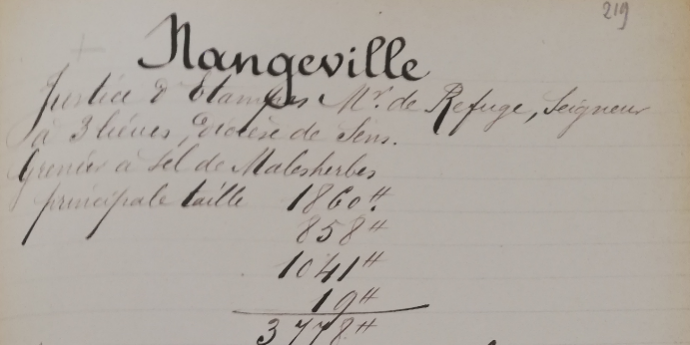 219
Nangeville
Justice d'Etampes Mr. de Refuge, Seigneur
à 3 lieues, Diocèse de Sens.
Grenier à Sel de Malesherbes
principale taille 1860 ₶.
858 ₶
1041 ₶
19 ₶
3778 ₶